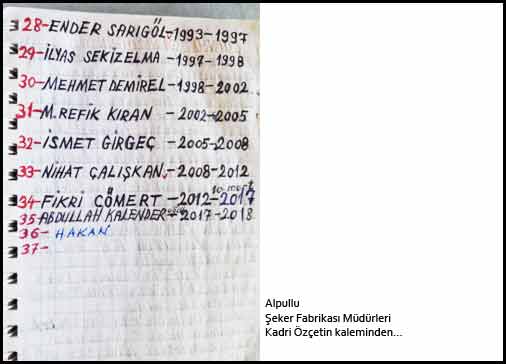 28-ENDER SARIGÖL-1993-1997
29-İLYAS SEKİZELMA-1997-1998
30-MEHMET DEMİREL-1998-2002
31-M.REFİK KIRAN 2002-2005
32-İSMET GİRGEÇ-2005-2008
33-NİHAT ÇALIŞKAN-2008-2012
34-FİKRİ CÖMERT-2012-2017
35-ABDULLAH KALENDER-2017-2018
36- HAKAN
37-
Alpullu
Şeker Fabrikası Müdürleri
Kadri Özçetin kaleminden...